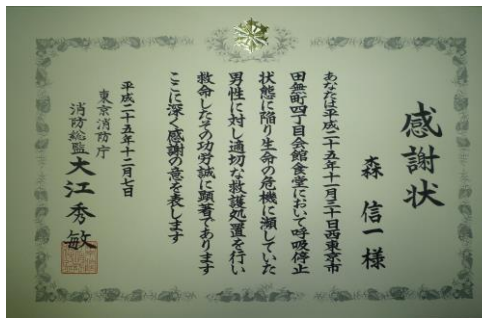 感謝状
森信一様
あなたは平成二十五年十一月三十日西東京市
田無町四丁目会館食堂において呼吸停止
状態に陥り生命の危機に瀕していた
男性に対し適切な救護処置を行い
救命したその功労誠に顕著であります
ここに深く感謝の意を表します
平成二十五年十二月七日
東京消防庁
消防総監 大江秀敏